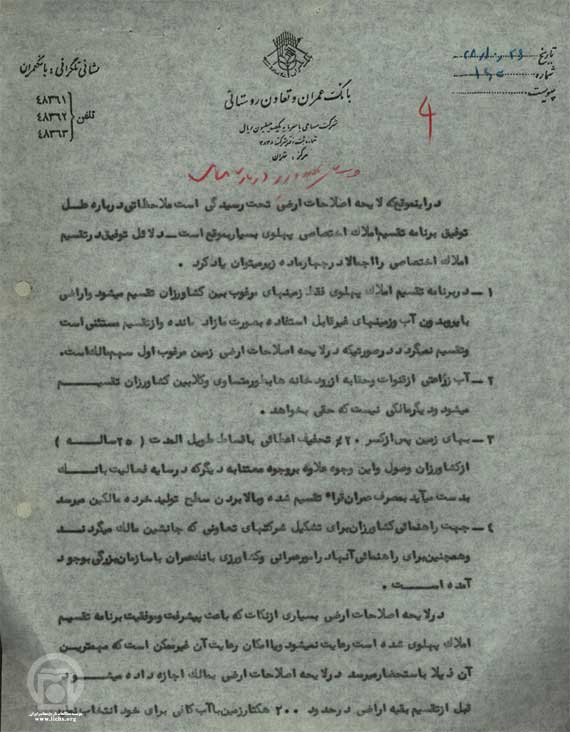 تاریخ
شماره
پیوست
نشانی تلگرافی : بانکعمران
تلفن
۴۸۳۶۱
۴۸۳۶۲
۴۸۳۶۳
بانک عمران و تعاون روستائی
مرکز : تهران
۴
در اینموقع که لایحه اصلاحات ارضی تحت رسیدگی است ملاحظاتی درباره علل
توفیق برنامه تقسیم املاک اختصاصی پهلوی بسیار بموقع است ـ دلائل توفیق در تقسیم
املاک اختصاصی را اجمالا در چهار ماده زیر میتوان یاد کرد .
۱ ـ در برنامه تقسیم املاک پهلوی فقط زمینهای مرغوب بین کشاورزان تقسیم میشود و اراضی
بایر و بدون آب و زمینهای غیر قابل استفاده بصورت مازاد مانده و از تقسیم مستثنی است
و تقسیم نمیگردد در صورتیکه در لایحه اصلاحات ارضی زمین مرغوب اول سهم مالک است.
۲ ـ آب زراعتی از قنوات و حقابه از رودخانه ها بطور متساوی و کلا بین کشاورزان تقسیم
میشود و دیگر مالکی نیست که حقی بخواهد .
۳ ـ بهای زمین پس از کسر ۲۰٪ تخفیف اعطائی باقساط طویل المدت ( ۲۵ ساله )
از کشاورزان وصول و این وجوه علاوه بر وجوه معتنابه دیگر که در سایه فعالیت بانک
بدست میآید بمصرف عمران قراء تقسیم شده و بالا بردن سطح تولید خرده مالکین میرسد
۴ ـ جهت راهنمائی کشاورزان برای تشکیل شرکتهای تعاونی که جانشین مالک میگردند
و همچنین برای راهنمائی آنها در امور عمرانی و کشاورزی بانک عمران با سازمان بزرگی بوجود
آمده است .
در لایحه اصلاحات ارضی بسیاری از نکات که باعث پیشرفت و موفقیت برنامه تقسیم
املاک پهلوی شده است رعایت نمیشود و یا امکان رعایت آن غیر ممکن است که مهمترین
آن ذیلا باستحضار میرسد در لایحه اصلاحات ارضی بمالک اجازه داده میشود
قبل از تقسیم بقیه اراضی در حدود ۲۰۰ هکتار زمین با آب کافی برای خود انتخاب نماید
www.iichs.org